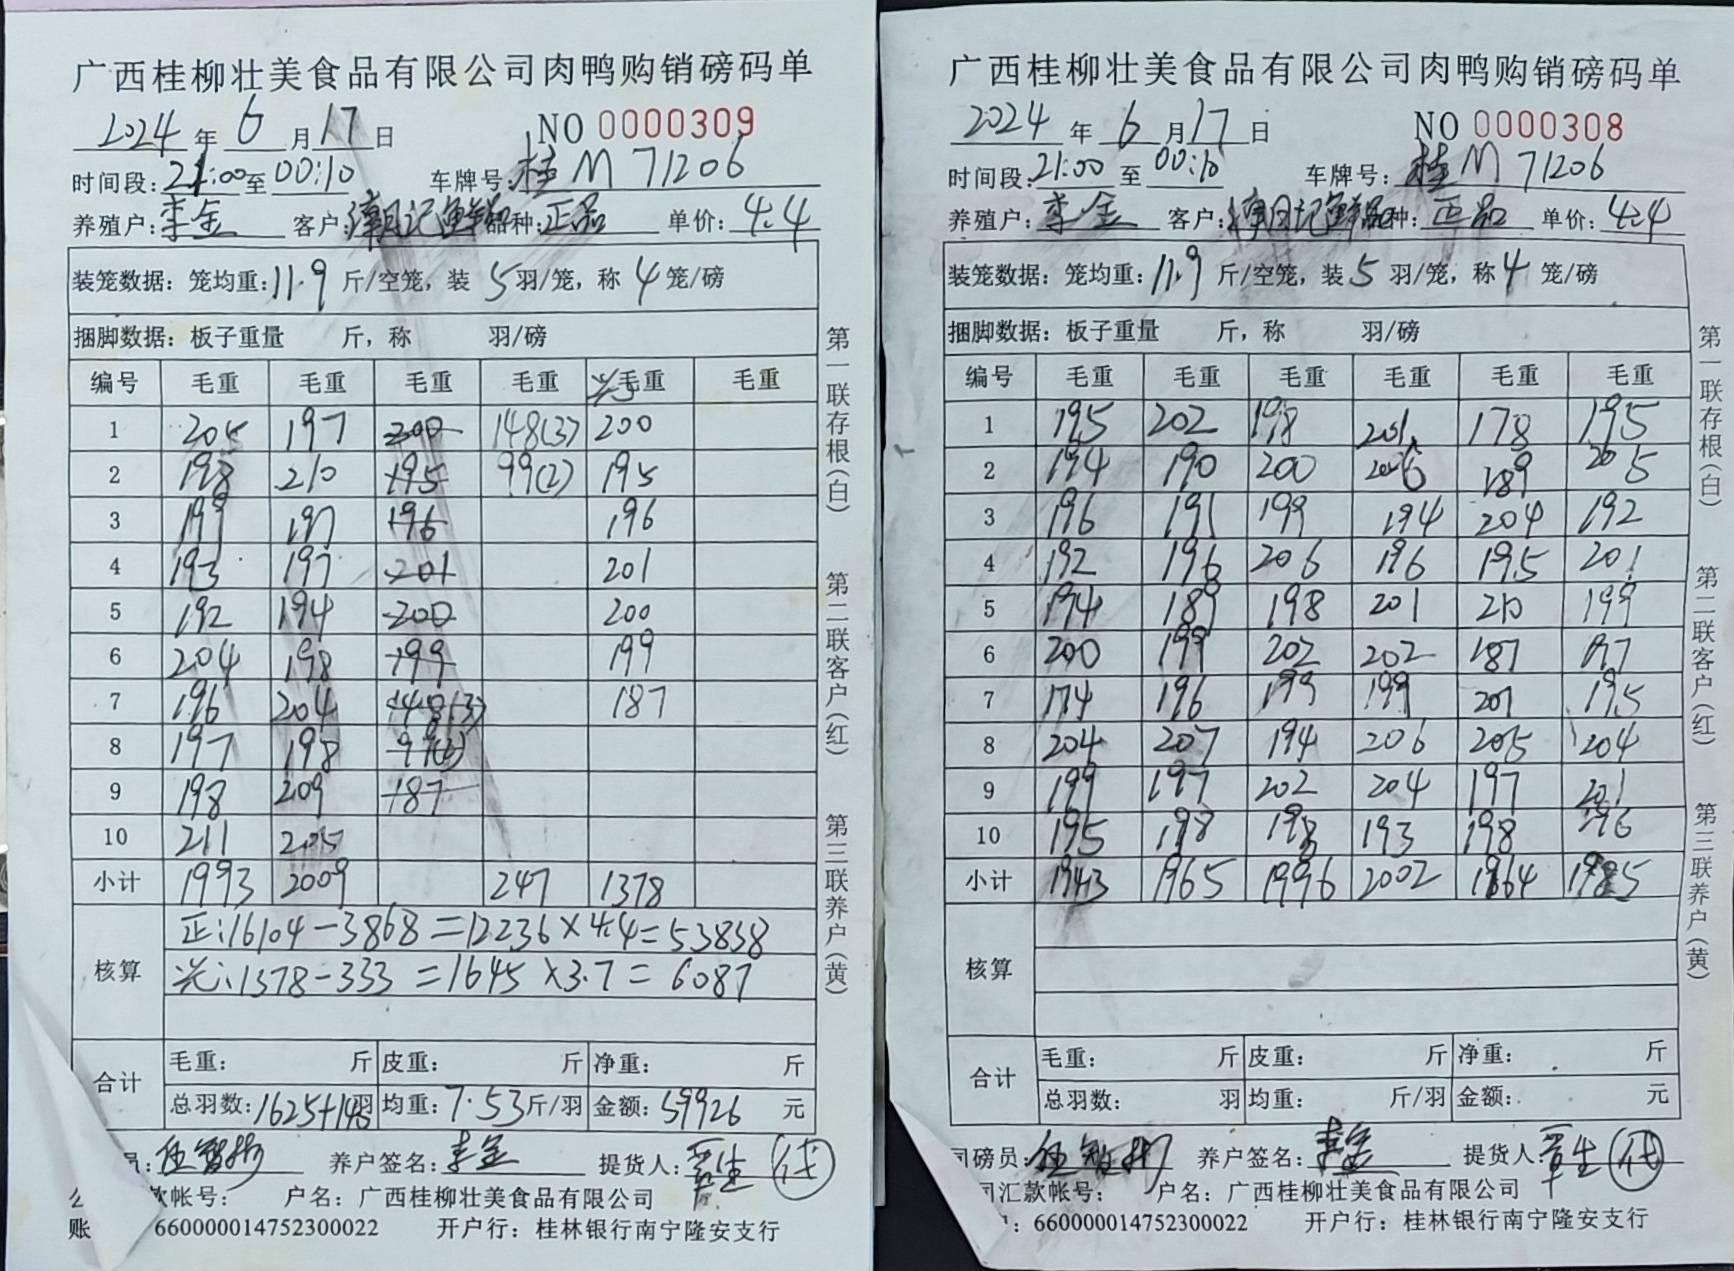 广西桂柳壮美食品有限公司肉鸭购销磅码单
2024 年 6 月 17 日 NO 0000309
时间段: 21:00 至 00:10 车牌号: 桂M 71206
养殖户: 李金 客户: 记鲜 品种: 正品 单价: 4.4
装笼数据: 笼均重: 11.9 斤/空笼, 装 5 羽/笼, 称 4 笼/磅
捆脚数据: 板子重量 斤, 称 羽/磅
编号 毛重 毛重 毛重 毛重 毛重 毛重
1 205 197 200 148(3) 200
2 198 210 195 99(2) 195
3 199 197 196 196
4 193 197 201 201
5 192 194 200 200
6 204 198 199 199
7 196 204 148(3) 187
8 197 198 99(2)
9 198 209 187
10 211 205
小计 1993 2009 247 1378
核算 正: 16104-3868=12236×4.4=53838
: 1378-333=1645×3.7=6087
合计 毛重: 斤 皮重: 斤 净重: 斤
总羽数: 1625+148 羽 均重: 7.53 斤/羽 金额: 59926 元
员: 养户签名: 李金 提货人: 覃生 (代)
款帐号: 户名: 广西桂柳壮美食品有限公司
账 660000014752300022 开户行: 桂林银行南宁隆安支行
第一联存根(白) 第二联客户(红) 第三联养户(黄)
广西桂柳壮美食品有限公司肉鸭购销磅码单
2024 年 6 月 17 日 NO 0000308
时间段: 21:00 至 00:10 车牌号: 桂M 71206
养殖户: 李金 客户: 记鲜 品种: 正品 单价: 4.4
装笼数据: 笼均重: 11.9 斤/空笼, 装 5 羽/笼, 称 4 笼/磅
捆脚数据: 板子重量 斤, 称 羽/磅
编号 毛重 毛重 毛重 毛重 毛重 毛重
1 195 202 198 201 178 195
2 194 190 200 206 189 205
3 196 191 199 194 204 192
4 192 196 206 196 195 201
5 194 189 198 201 210 199
6 200 199 202 202 187 197
7 174 196 199 199 201 195
8 204 207 194 206 205 204
9 199 197 202 204 197 201
10 195 198 198 193 198 196
小计 1943 1965 1996 2002 1964 1985
核算
合计 毛重: 斤 皮重: 斤 净重: 斤
总羽数: 羽 均重: 斤/羽 金额: 元
司磅员: 养户签名: 李金 提货人: 覃生 (代)
司汇款帐号: 户名: 广西桂柳壮美食品有限公司
: 660000014752300022 开户行: 桂林银行南宁隆安支行
第一联存根(白) 第二联客户(红) 第三联养户(黄)